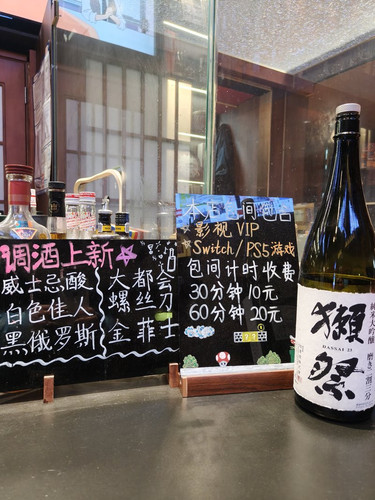 调酒上新
威士忌酸
白色佳人
黑俄罗斯
大都会
螺丝刀
金菲士
影视 VIP
Switch/PS5游戏
包间计时收费
30分钟10元
60分钟20元
獺祭
DASSAI 23
純米大吟醸
磨き二割三分